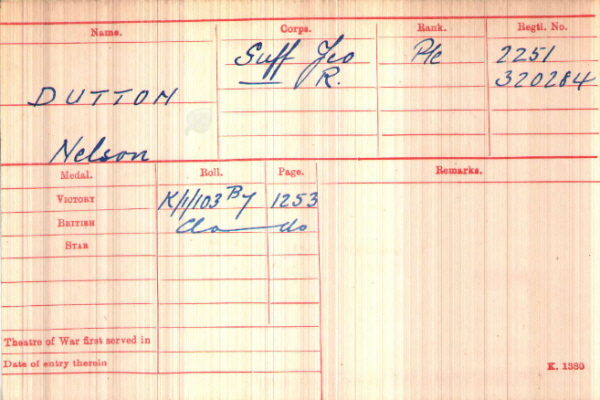 Name. Corps. Rank. Regtl. No.
Suff Yeo Pte 2251
R. 320284
DUTTON
Nelson
Medal. Roll. Page. Remarks.
VICTORY K/1/103 B7 1253
BRITISH do do
STAR
Theatre of War first served in
Date of entry therein
K. 1380